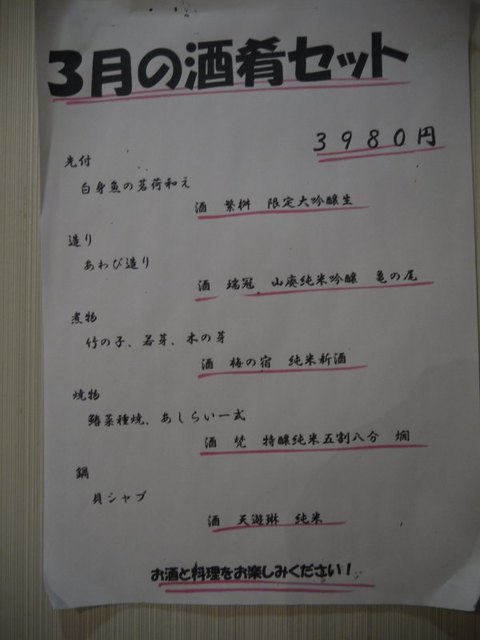 3月の酒肴セット
3980円
先付
白身魚の茗荷和え
酒 繁桝 限定大吟醸生
造り
あわび造り
酒 瑞冠 山廃純米吟醸 亀の尾
煮物
竹の子、若芽、木の芽
酒 梅の宿 純米新酒
焼物
鰆菜種焼、あしらい一式
酒 梵 特醸純米五割八分 燗
鍋
貝シャブ
酒 天遊琳 純米
お酒と料理をお楽しみください!